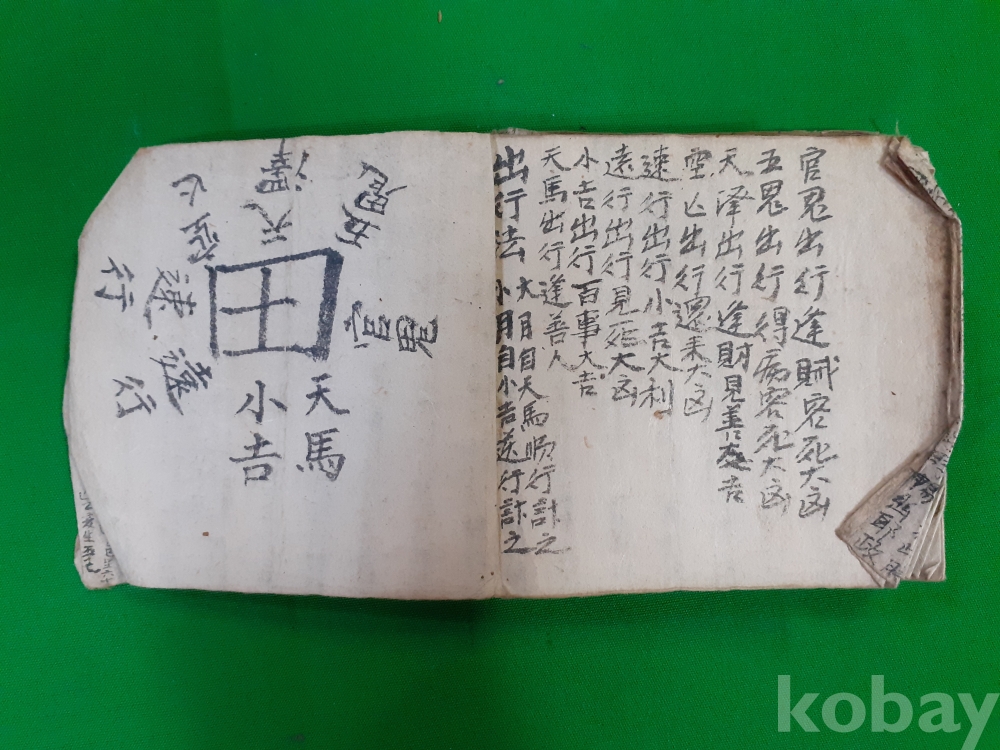 官鬼出行逢賊客死大凶
五鬼出行得病客死大凶
天泽出行逢財見善吉
空亡出行還来大凶
速行出行小吉大利
遠行出行見死大凶
小吉出行百事大吉
天馬出行逢善人
出行法
大月自天馬順行計之
小月自小吉逆行計之
天馬
小吉
遠行
速行
空亡
天澤
五鬼
官鬼
田
kobay